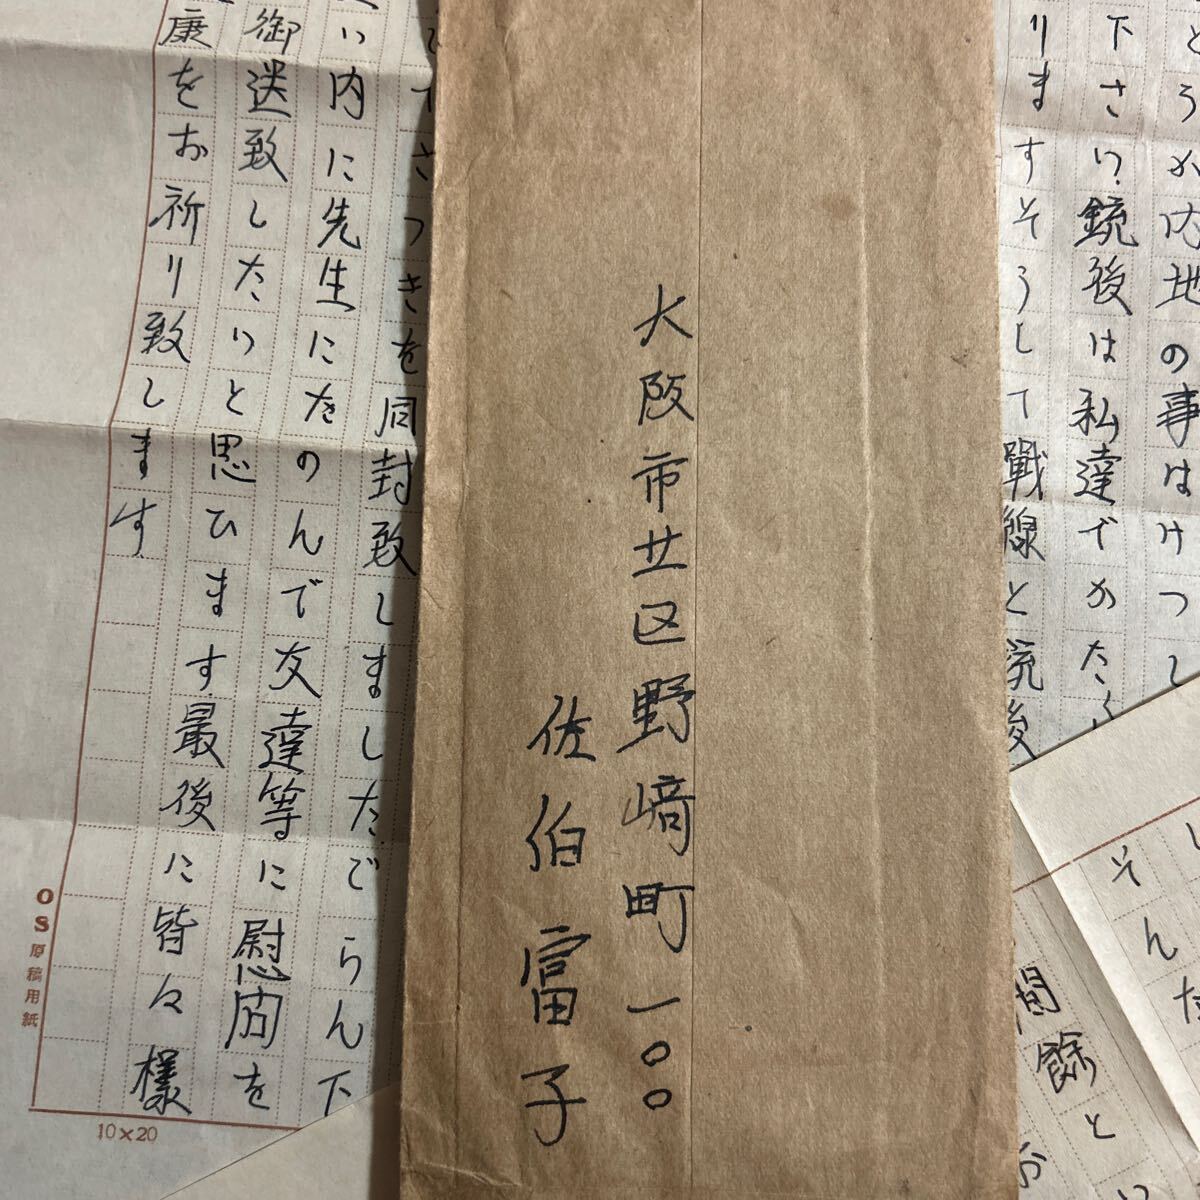 とうか内地の事はけつし
下さい、銃後は私達でかため
りますそうして戰線と銃後
大阪市北区野﨑町一〇〇
佐伯富子
さつきを同封致しましたでらん下
い内に先生にたのんで友達等に慰问を
御送致したいと思ひます最後に皆々様
康をお祈り致します
OS原稿用紙
10×20
そんな
間
餘と